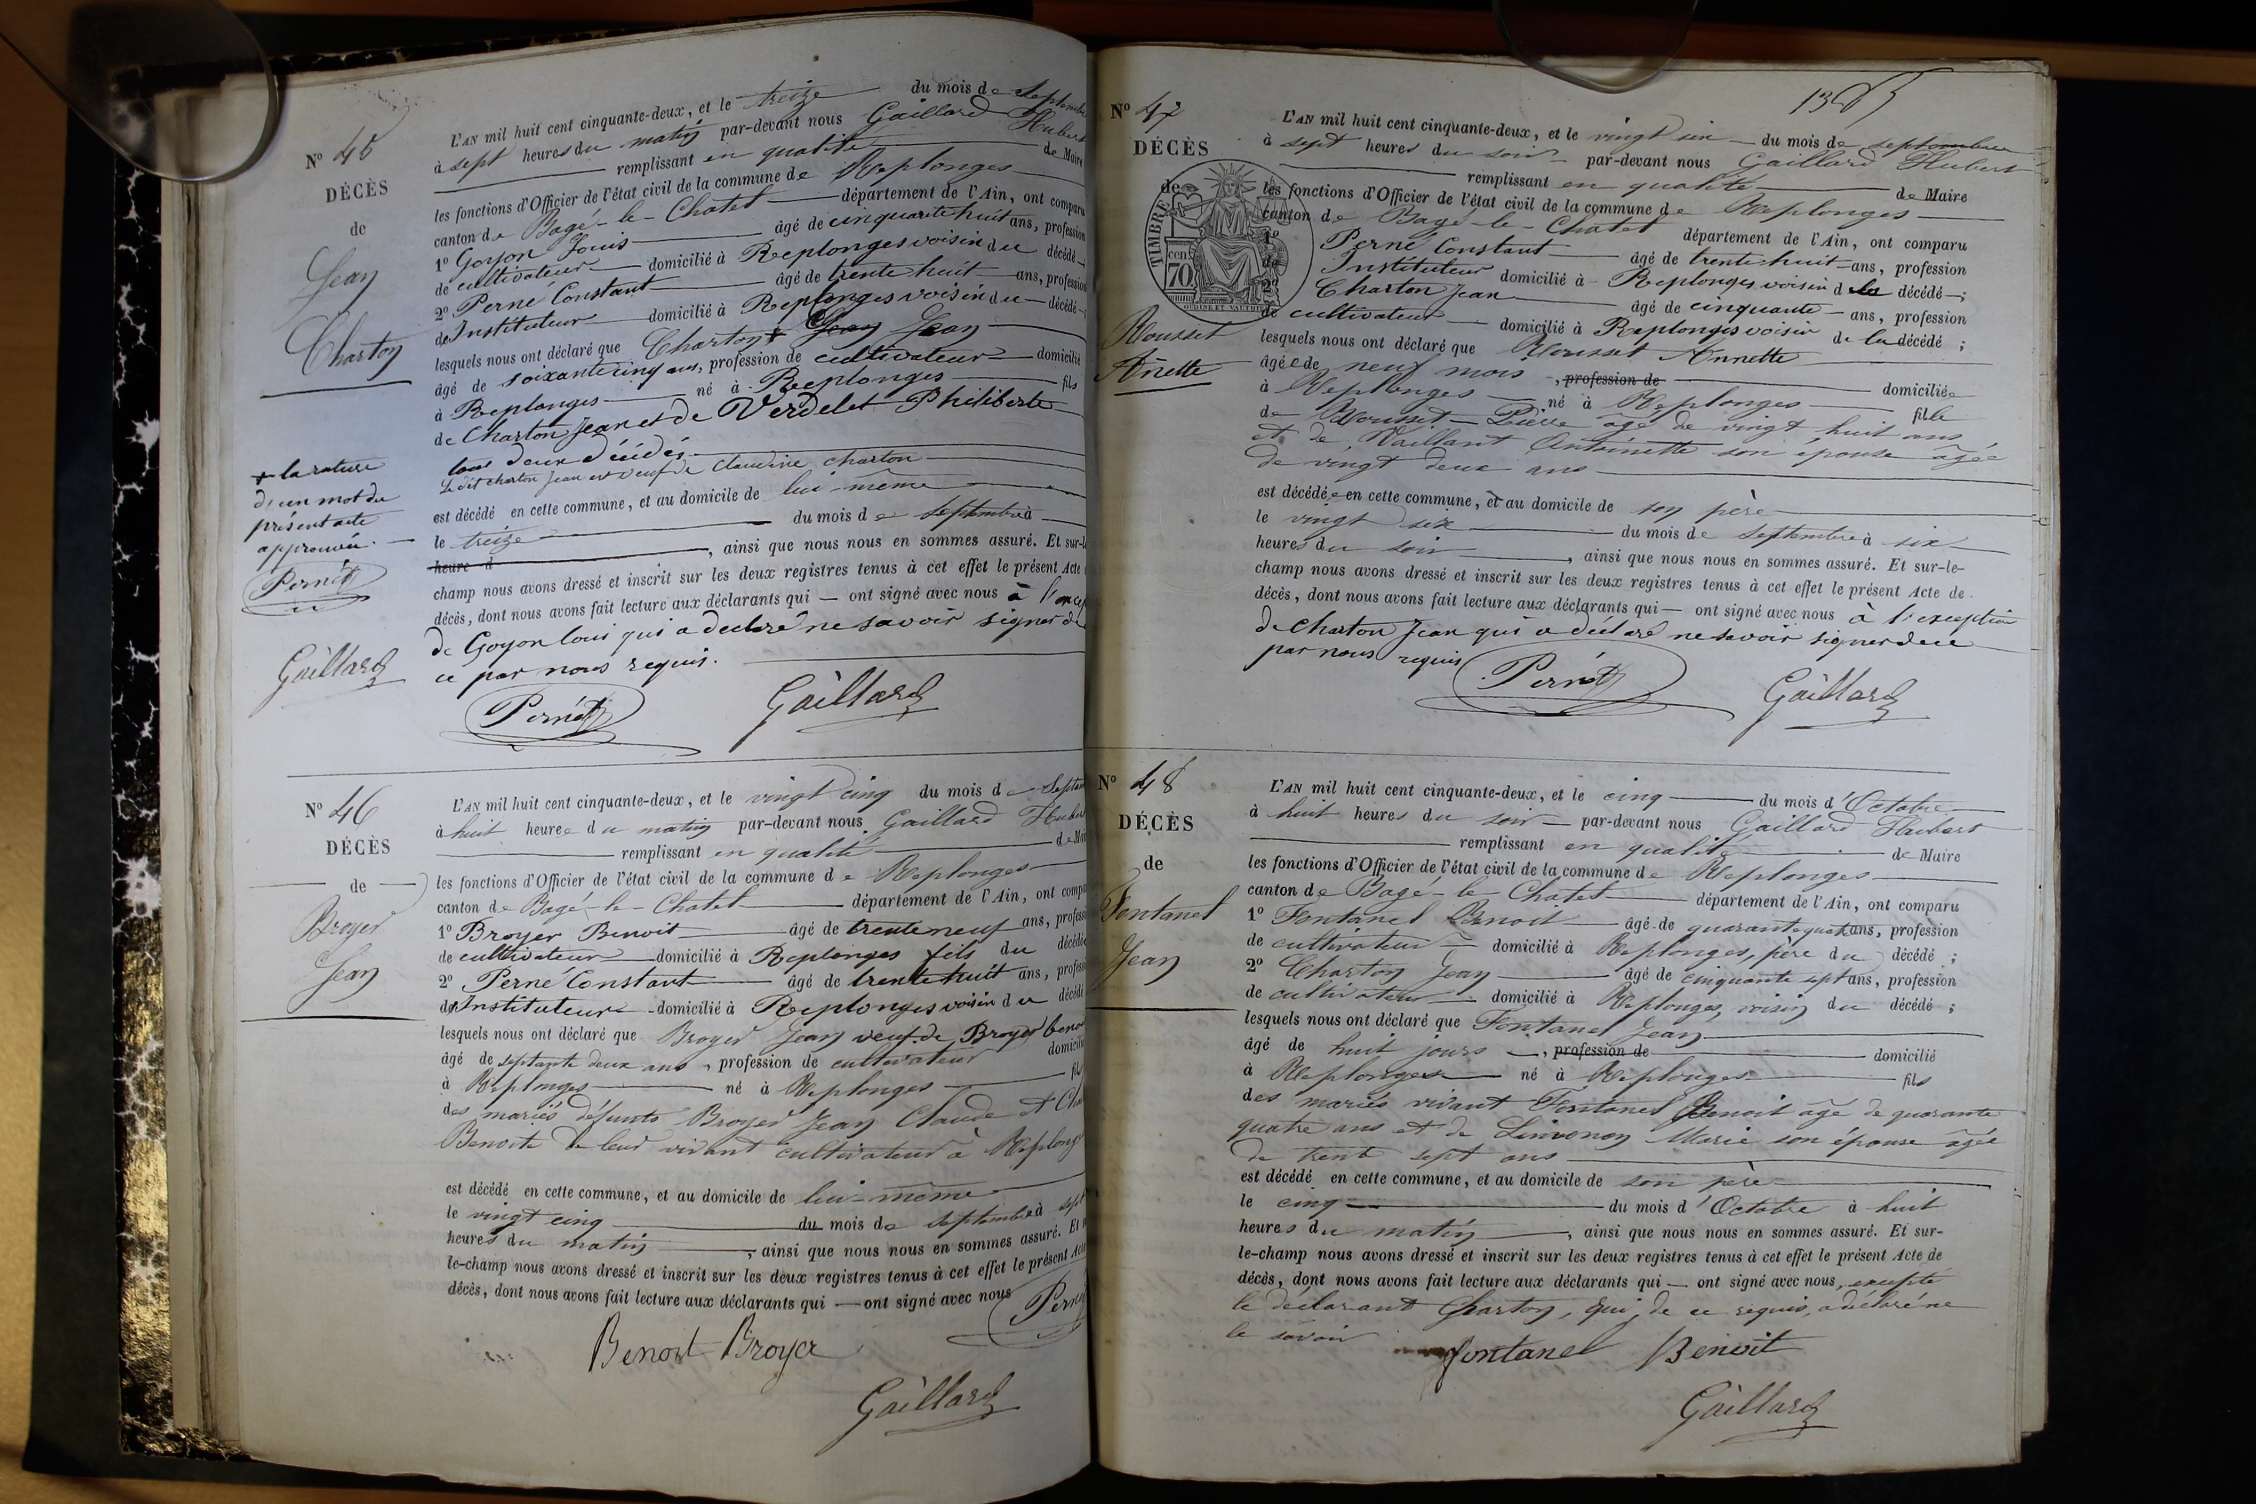 Nº 45
DÉCÈS
de
Jean
Charton
L'AN mil huit cent cinquante-deux, et le treize du mois de septembre
à sept heures du matin par-devant nous Gaillard Hubert
remplissant en qualité de Maire
les fonctions d'Officier de l'état civil de la commune de Replonges
canton de Bagé-le-Chatel département de l'Ain, ont comparu
1º Goyon Louis âgé de cinquante huit ans, profession
de cultivateur domicilié à Replonges voisin du décédé
2º Perné Constant âgé de trente huit ans, profession
de Instituteur domicilié à Replonges voisin du décédé
lesquels nous ont déclaré que Charton Jean
âgé de soixante cinq ans, profession de cultivateur domicilié
à Replonges né à Replonges fils
de Charton Jean et de Verdelet Philiberte
tous deux décédés
Le dit charton Jean est veuf de Claudine charton
est décédé en cette commune, et au domicile de lui-même
le treize du mois de septembre à
heure d , ainsi que nous nous en sommes assuré. Et sur-le-
champ nous avons dressé et inscrit sur les deux registres tenus à cet effet le présent Acte
décès, dont nous avons fait lecture aux déclarants qui — ont signé avec nous à l'excep
de Goyon loui qui a déclaré ne savoir signer de
ce par nous requis.
+ la rature
d'un mot du
présent acte
approuvée.
Pernét
Gaillard
Pernét Gaillard
Nº 46
DÉCÈS
de
Broyer
Jean
L'AN mil huit cent cinquante-deux, et le vingt cinq du mois de Septem
à huit heures du matin par-devant nous Gaillard Hubert
remplissant en qualité de Mai
les fonctions d'Officier de l'état civil de la commune de Replonges
canton de Bagé-le-Chatel département de l'Ain, ont compa
1º Broyer Benoit âgé de trente neuf ans, profess
de cultivateur domicilié à Replonges fils du décédé
2º Perné Constant âgé de trente huit ans, profess
de Instituteur domicilié à Replonges voisin du décédé
lesquels nous ont déclaré que Broyer Jean veuf de Broyer benoi
âgé de septante deux ans, profession de cultivateur domicilié
à Replonges né à Replonges fils
des mariés défunts Broyer Jean Claude et
Benoite de leur vivant cultivateur à Replong
est décédé en cette commune, et au domicile de lui-même
le vingt cinq du mois de septembre à sept
heures du matin , ainsi que nous nous en sommes assuré. Et
le-champ nous avons dressé et inscrit sur les deux registres tenus à cet effet le présent Acte
décès, dont nous avons fait lecture aux déclarants qui — ont signé avec nous
Pern
Benoit Broyer
Gaillard
Nº 47
DÉCÈS
de
Rousset
Anette
TIMBRE
70
L'AN mil huit cent cinquante-deux, et le vingt six du mois de septembre
à sept heures du soir par-devant nous Gaillard Hubert
remplissant en qualité de Maire
les fonctions d'Officier de l'état civil de la commune de Replonges
canton de Bagé-le-Chatel département de l'Ain, ont comparu
1º Perné Constant âgé de trente huit ans, profession
de Instituteur domicilié à Replonges voisin de la décédé ;
2º Charton Jean âgé de cinquante ans, profession
de cultivateur domicilié à Replonges voisin de la décédé ;
lesquels nous ont déclaré que Rousset Annette
âgée de neuf mois , profession de domiciliée
à Replonges né à Replonges fille
de Rousset Pierre âgé de vingt huit ans
et de Antoinette son épouse âgée
de vingt deux ans
est décédée en cette commune, et au domicile de son père
le vingt six du mois de septembre à six
heures du soir , ainsi que nous nous en sommes assuré. Et sur-le-
champ nous avons dressé et inscrit sur les deux registres tenus à cet effet le présent Acte de
décès, dont nous avons fait lecture aux déclarants qui — ont signé avec nous à l'exception
de Charton Jean qui a déclaré ne savoir signer de ce
par nous requis
Pernét Gaillard
Nº 48
DÉCÈS
de
Fontanel
Jean
L'AN mil huit cent cinquante-deux, et le cinq du mois d'Octobre
à huit heures du soir par-devant nous Gaillard Hubert
remplissant en qualité de Maire
les fonctions d'Officier de l'état civil de la commune de Replonges
canton de Bagé-le-Chatel département de l'Ain, ont comparu
1º Fontanel Benoit âgé de quarante quatre ans, profession
de cultivateur domicilié à Replonges, père du décédé ;
2º Charton Jean âgé de cinquante sept ans, profession
de cultivateur domicilié à Replonges, voisin du décédé ;
lesquels nous ont déclaré que Fontanel Jean
âgé de huit jours , profession de domicilié
à Replonges né à Replonges fils
des mariés vivant Fontanel Benoit âgé de quarante
quatre ans et de Marie son épouse âgée
de trente sept ans
est décédé en cette commune, et au domicile de son père
le cinq du mois d'Octobre à huit
heures du matin , ainsi que nous nous en sommes assuré. Et sur-
le-champ nous avons dressé et inscrit sur les deux registres tenus à cet effet le présent Acte de
décès, dont nous avons fait lecture aux déclarants qui — ont signé avec nous, excepté
le déclarant Charton, qui, de ce requis, a déclaré ne
le savoir
Fontanel Benoit
Gaillard